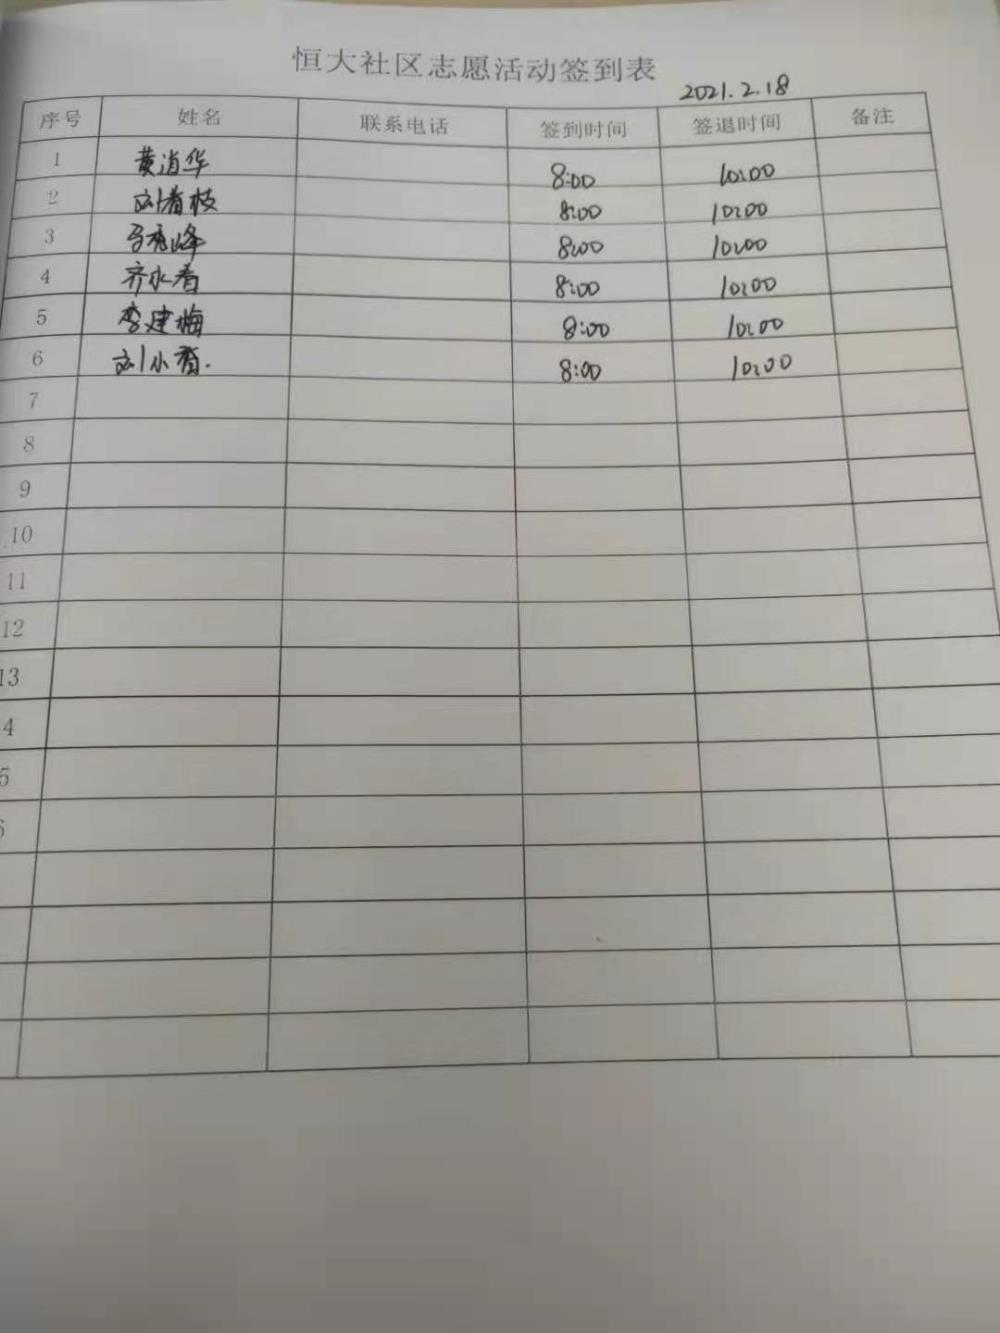 恒大社区志愿活动签到表
2021.2.18
序号 姓名 联系电话 签到时间 签退时间 备注
1 黄消华 8:00 10:00
2 刘春枝 8:00 10:00
3 马秀峰 8:00 10:00
4 齐永春 8:00 10:00
5 李建梅 8:00 10:00
6 刘小看. 8:00 10:00
7
8
9
10
11
12
13
4
5